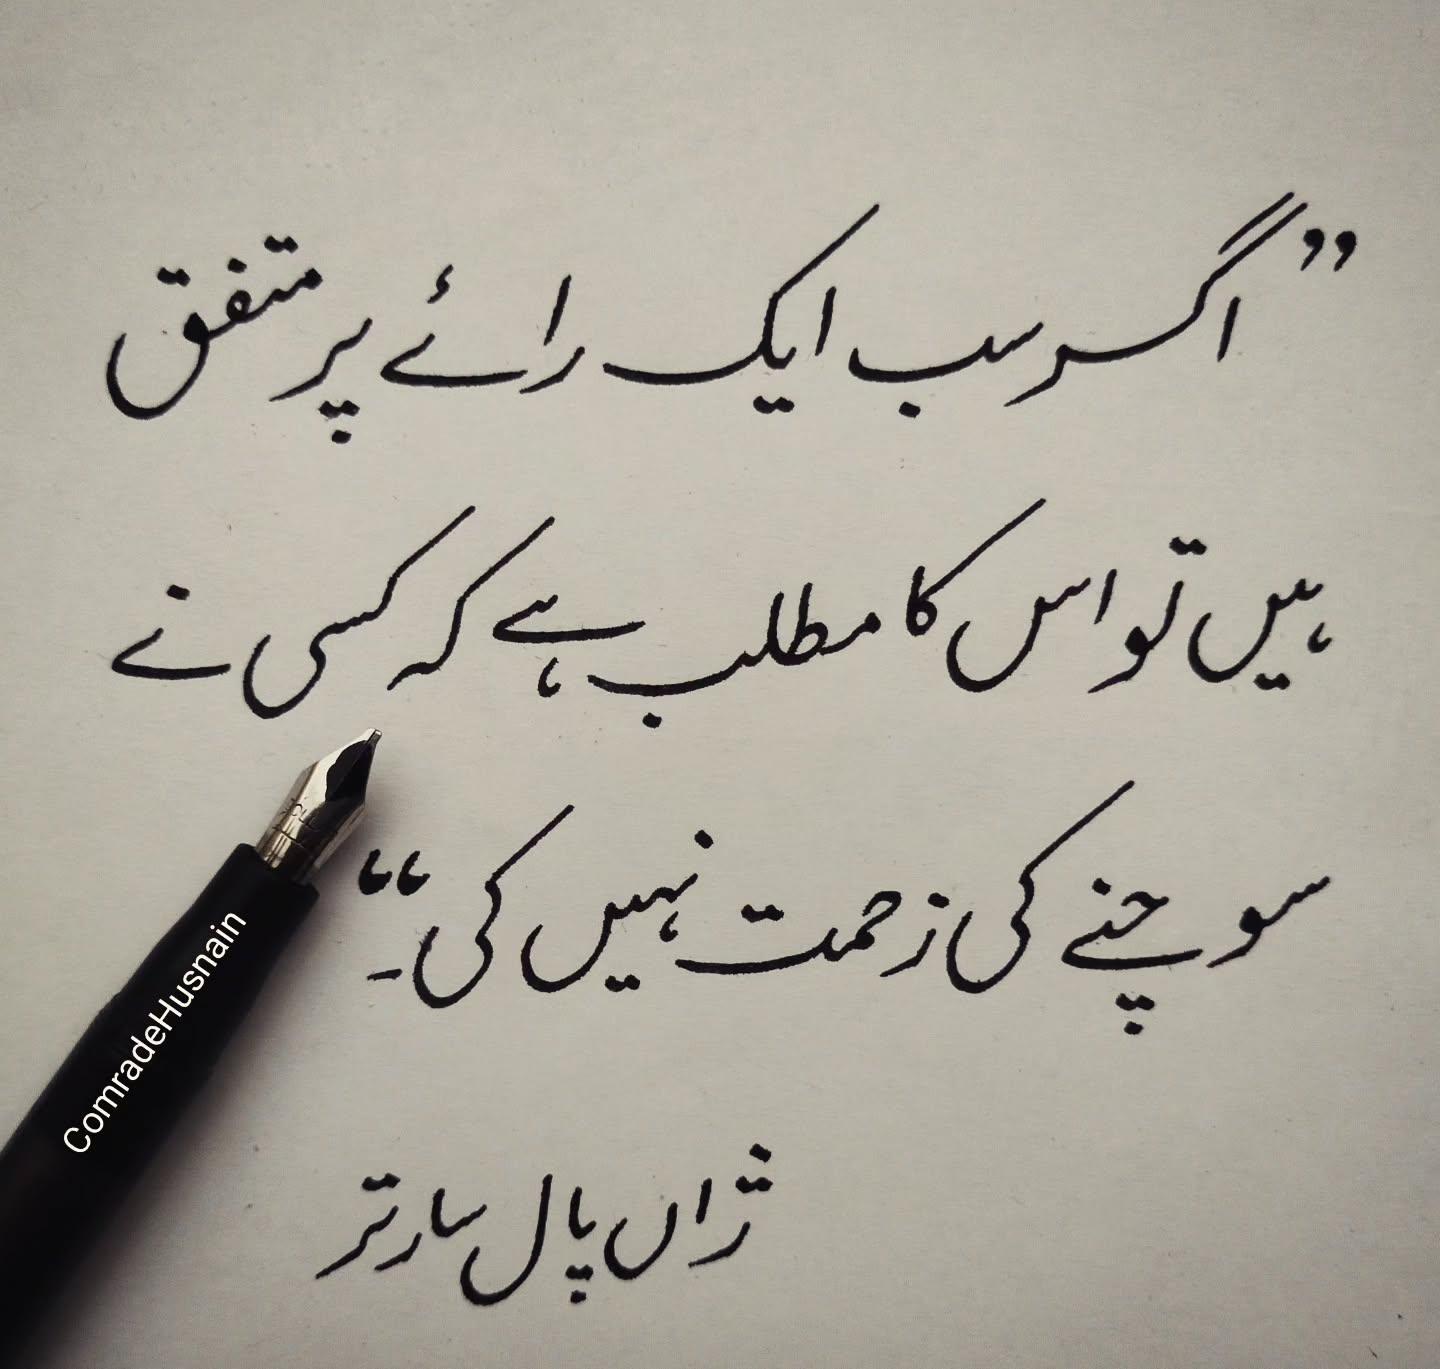 ”اگر سب ایک رائے پر متفق
ہیں تو اس کا مطلب ہے کہ کسی نے
سوچنے کی زحمت نہیں کی۔“
ژاں پال سارتر
ComradeHusnain